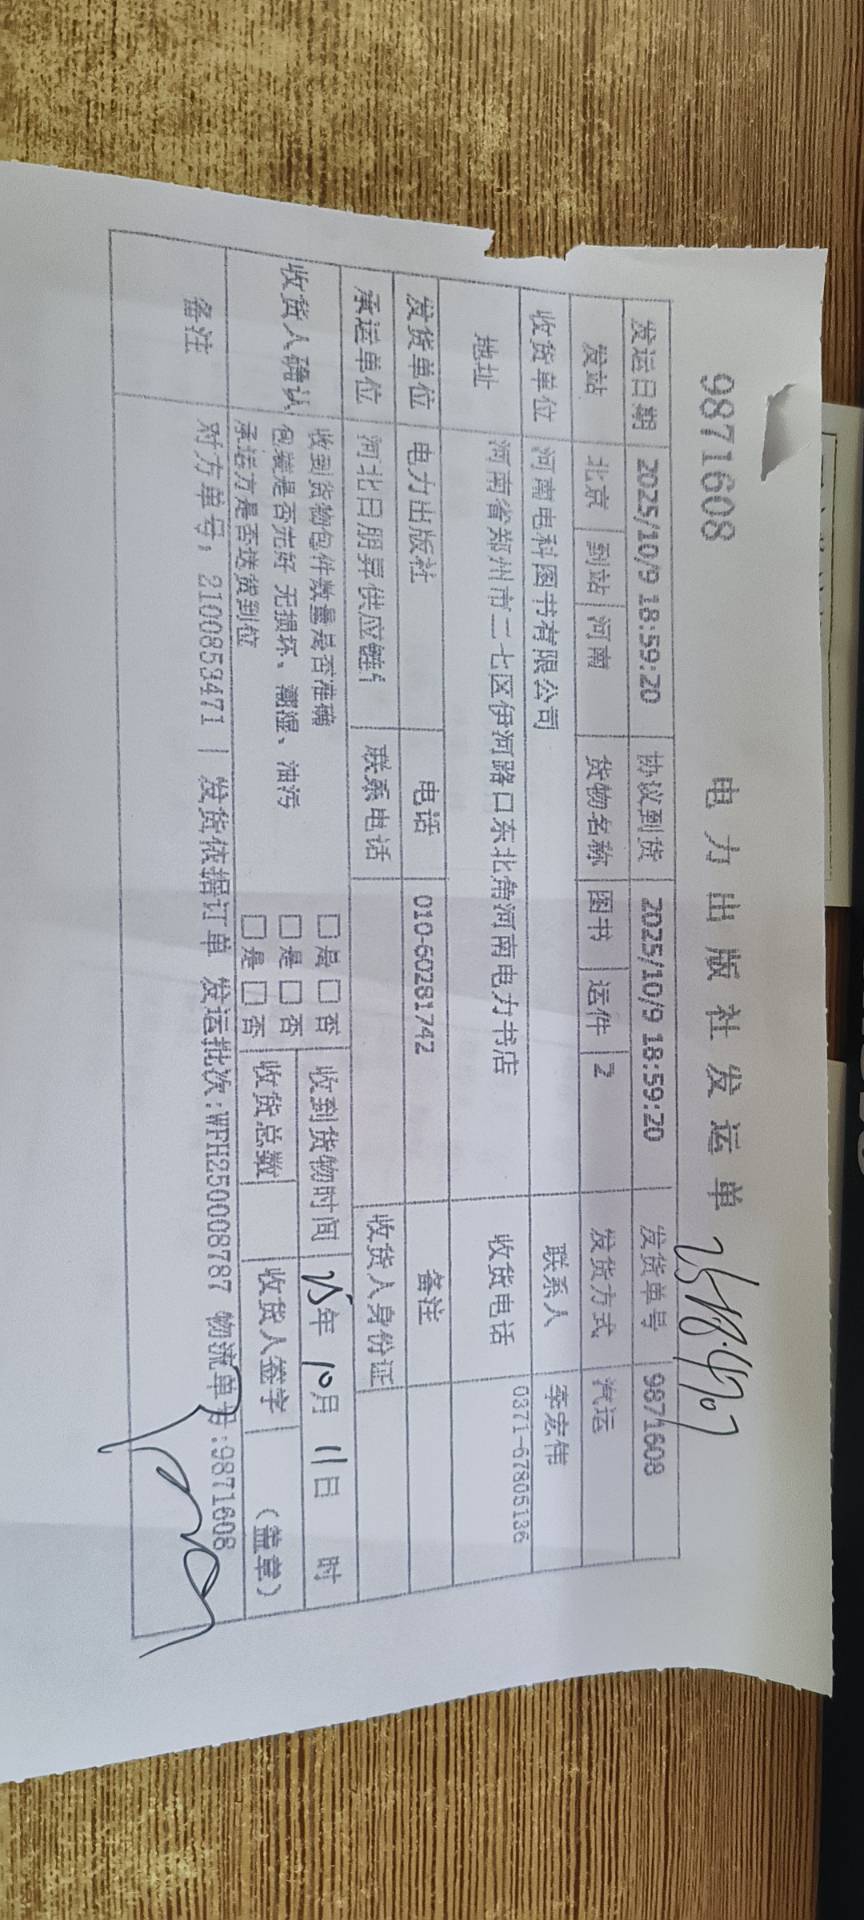 9871608
电力出版社发运单
发运日期 2025/10/9 18:59:20 协议到货 2025/10/9 18:59:20 发货单号 9871608
发站 北京 到站 河南 货物名称 图书 运件 2 发货方式 汽运
收货单位 河南电科图书有限公司 联系人 李宏伟
地址 河南省郑州市二七区伊河路口东北角河南电力书店 收货电话 0371-67805136
发货单位 电力出版社 电话 010-60281742 备注
承运单位 河北日朋昇供应链 联系电话 收货人身份证
收货人确认 收到货物包件数量是否准确 □是□否 收到货物时间 25年10月11日 时
包装是否完好 无损坏、潮湿、油污 □是□否
承运方是否送货到位 □是□否 收货总数 收货人签字 (盖章)
备注 对方单号：2100853471 | 发货依据订单 发运批次:WPH250008787 物流单号:9871608